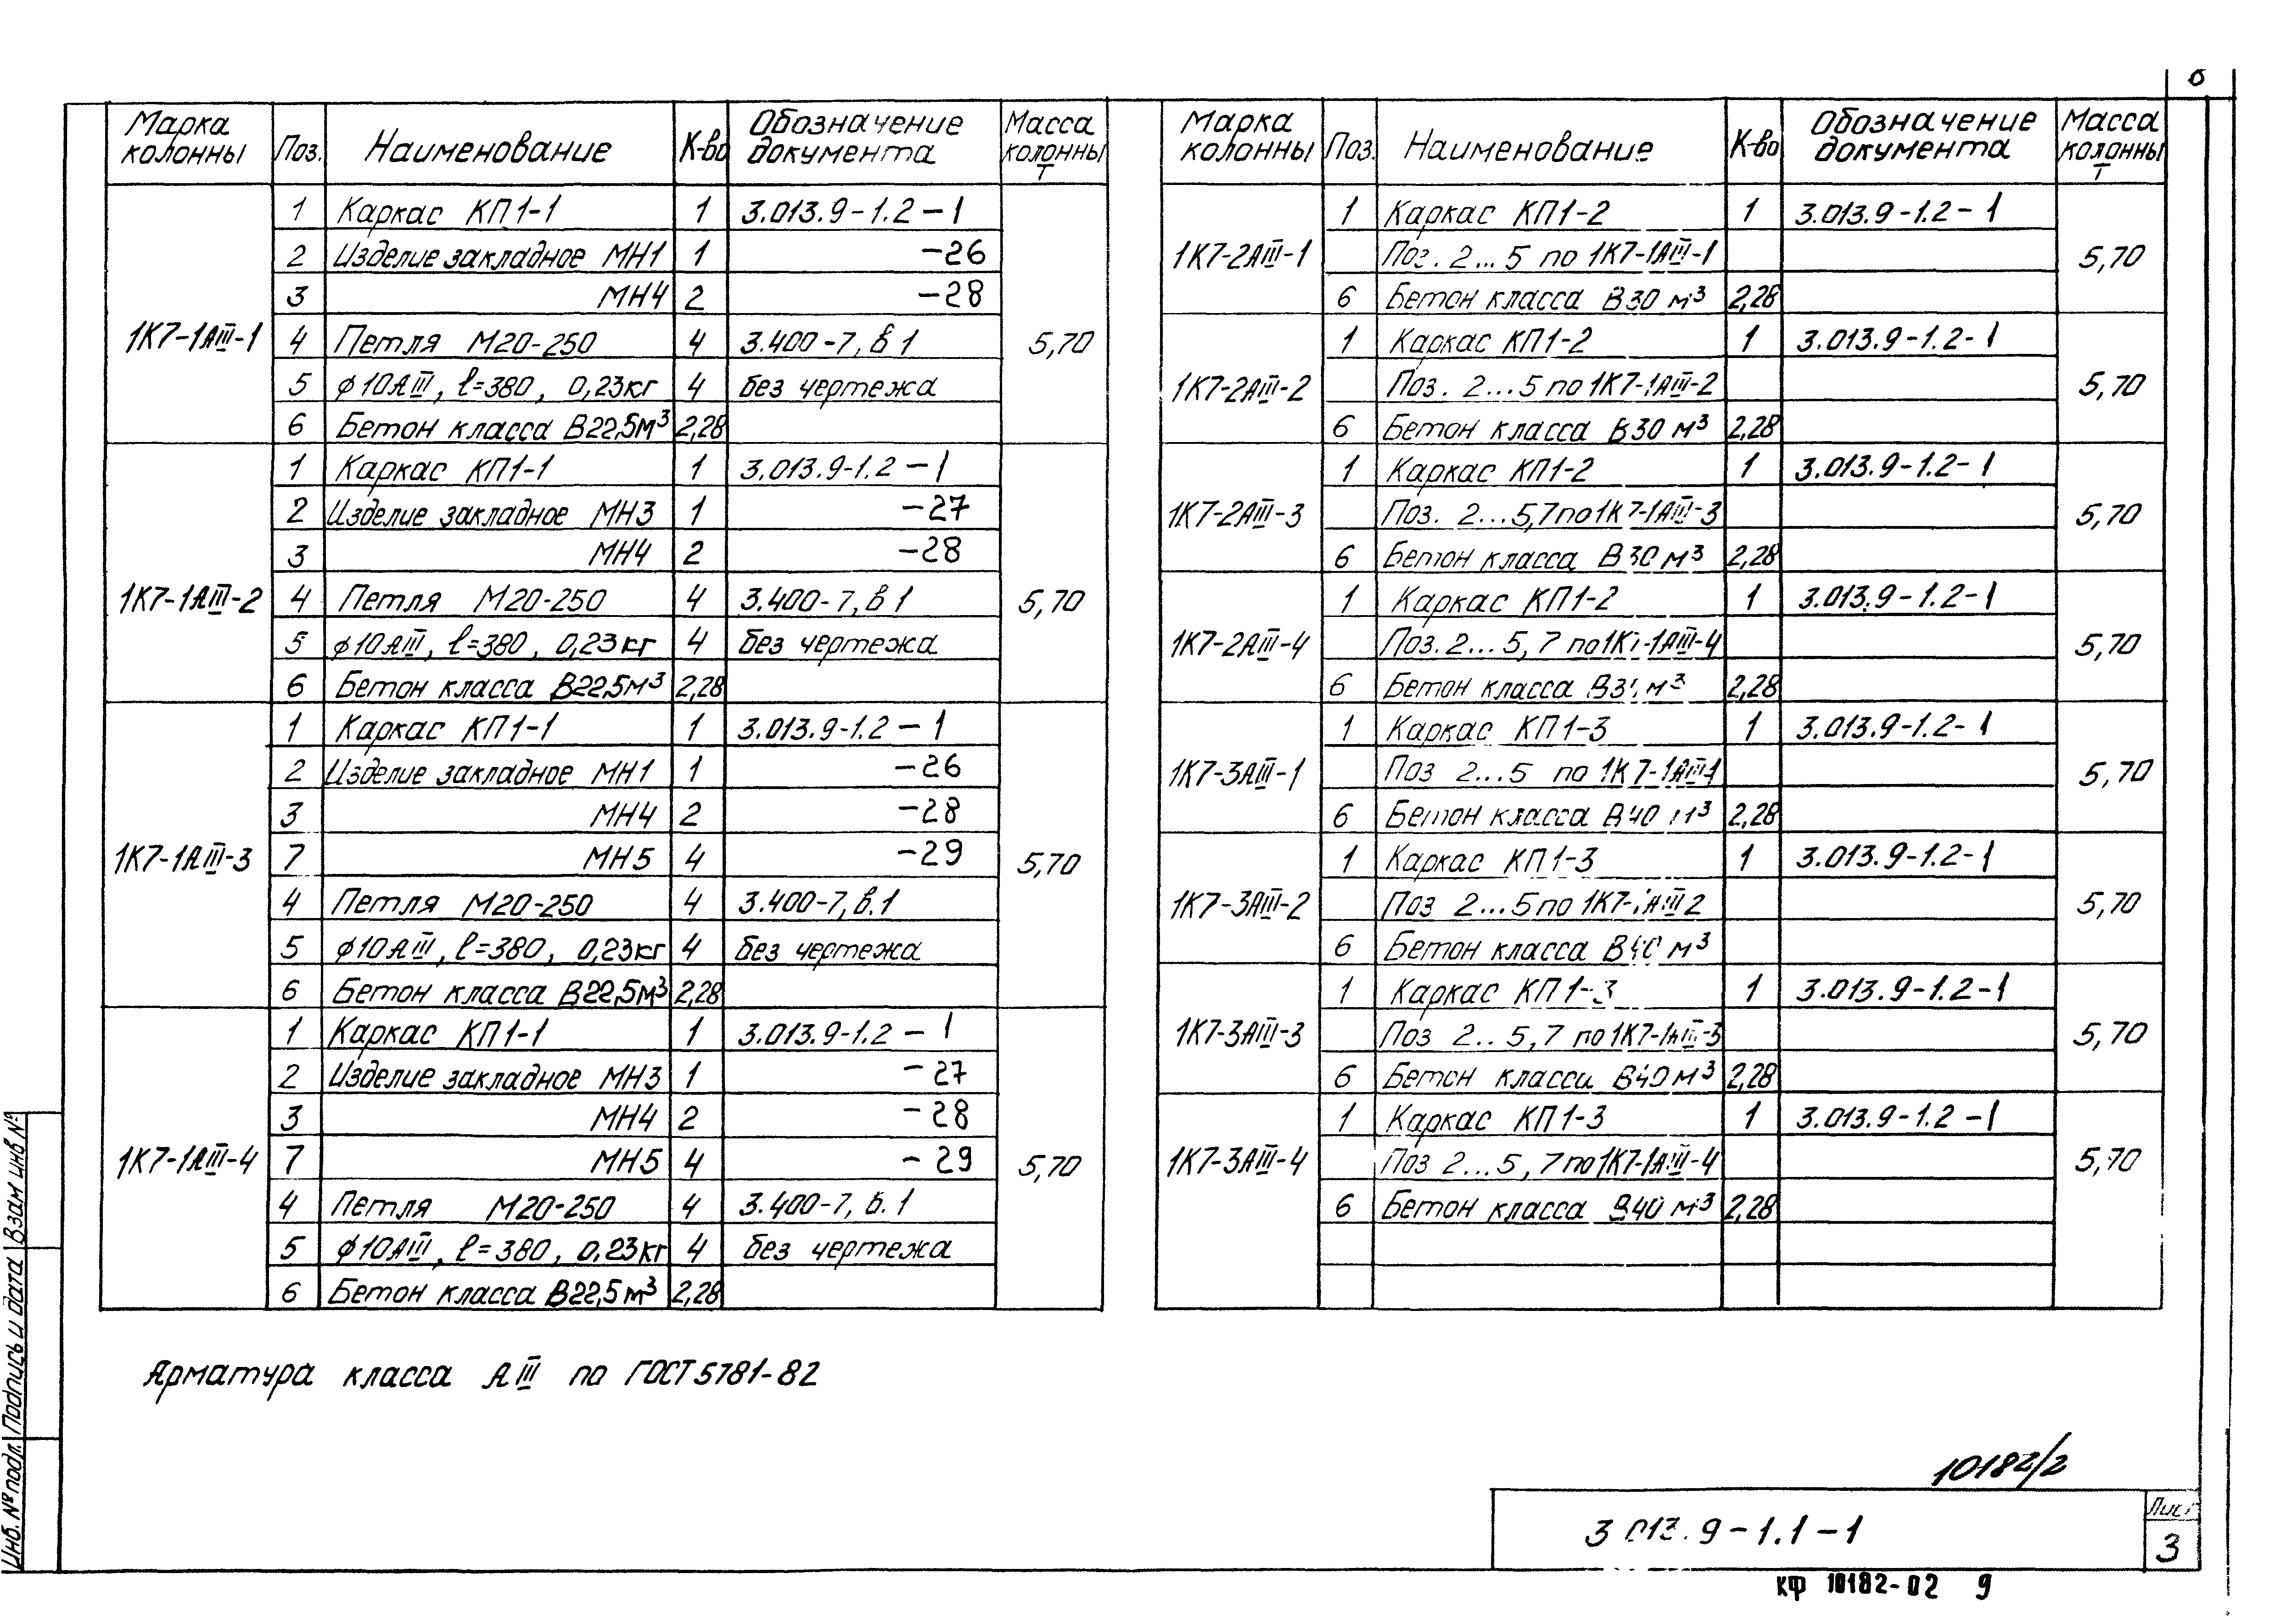 Марка колонны Поз. Наименование К-во Обозначение документа Масса колонны т
1К7-1АIII-1
1 Каркас КП1-1 1 3.013.9-1.2-1
2 Изделие закладное МН1 1 -26
3 МН4 2 -28
4 Петля М20-250 4 3.400-7, в 1 5,70
5 ф10АIII, ℓ=380, 0,23кг 4 без чертежа
6 Бетон класса В22,5м³ 2,28
1К7-1АIII-2
1 Каркас КП1-1 1 3.013.9-1.2-1
2 Изделие закладное МН3 1 -27
3 МН4 2 -28
4 Петля М20-250 4 3.400-7, в 1 5,70
5 ф10АIII, ℓ=380, 0,23кг 4 без чертежа
6 Бетон класса В22,5м³ 2,28
1К7-1АIII-3
1 Каркас КП1-1 1 3.013.9-1.2-1
2 Изделие закладное МН1 1 -26
3 МН4 2 -28
7 МН5 4 -29 5,70
4 Петля М20-250 4 3.400-7, в.1
5 ф10АIII, ℓ=380, 0,23кг 4 без чертежа
6 Бетон класса В22,5м³ 2,28
1К7-1АIII-4
1 Каркас КП1-1 1 3.013.9-1.2-1
2 Изделие закладное МН3 1 -27
3 МН4 2 -28
7 МН5 4 -29 5,70
4 Петля М20-250 4 3.400-7, в.1
5 ф10АIII, ℓ=380, 0,23кг 4 без чертежа
6 Бетон класса В22,5м³ 2,28
Марка колонны Поз. Наименование К-во Обозначение документа Масса колонны т
1К7-2АIII-1
1 Каркас КП1-2 1 3.013.9-1.2-1
Поз. 2...5 по 1К7-1АIII-1 5,70
6 Бетон класса В30 м³ 2,28
1К7-2АIII-2
1 Каркас КП1-2 1 3.013.9-1.2-1
Поз. 2...5 по 1К7-1АIII-2 5,70
6 Бетон класса В30 м³ 2,28
1К7-2АIII-3
1 Каркас КП1-2 1 3.013.9-1.2-1
Поз. 2...5,7 по 1К7-1АIII-3 5,70
6 Бетон класса В30 м³ 2,28
1К7-2АIII-4
1 Каркас КП1-2 1 3.013.9-1.2-1
Поз. 2...5, 7 по 1К7-1АIII-4 5,70
6 Бетон класса м³ 2,28
1К7-3АIII-1
1 Каркас КП1-3 1 3.013.9-1.2-1
Поз 2...5 по 1К7-1АIII-1 5,70
6 Бетон класса В40 м³ 2,28
1К7-3АIII-2
1 Каркас КП1-3 1 3.013.9-1.2-1
Поз 2...5 по 1К7-1АIII 2 5,70
6 Бетон класса В40 м³
1К7-3АIII-3
1 Каркас КП1-3 1 3.013.9-1.2-1
Поз 2..5,7 по 1К7-1АIII-3 5,70
6 Бетон класса В40 м³ 2,28
1К7-3АIII-4
1 Каркас КП1-3 1 3.013.9-1.2-1
Поз 2...5, 7 по 1К7-1АIII-4 5,70
6 Бетон класса В40 м³ 2,28
Арматура класса АIII по ГОСТ 5781-82
10182/2
3 013.9-1.1-1
Лист
3
КФ 10182-02 9
Инв. № подл. Подпись и дата Взам инв №